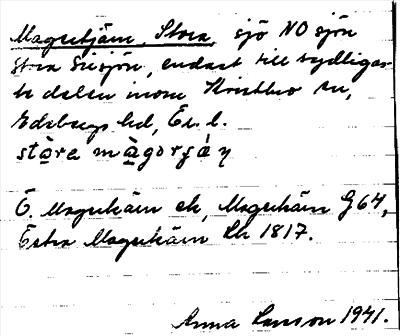 Magretjärn, Stora, sjö NO sjön
Stora Gresjön, endast till sydligas-
te delen inom Kristbro sn,
Edsbergs hd, Ör. l.
stòra màgorʃàη
Ö. Magrekärn ek, Magrekärn G64,
Östra Magrekärn Lk 1817.
Anna Larsson 1941.